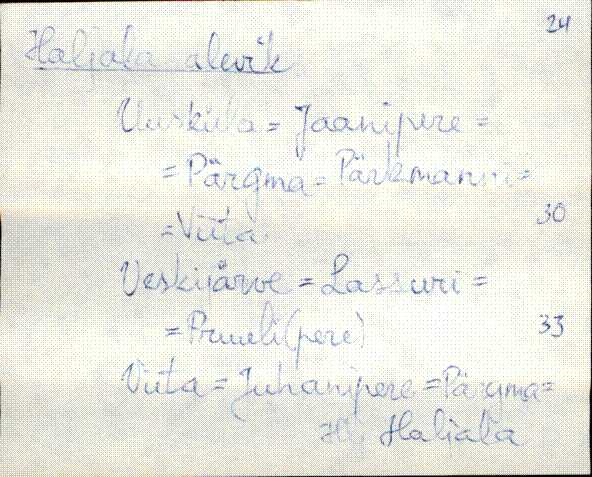 24
Haljala alevik
Uusküla = Jaanipere =
= Pärgma = Pärkmanni =
= Viita 30
Veskijärve = Lassuri =
= Pruuli(pere) 33
Viita = Juhanipere = Pärgma =
Haljala